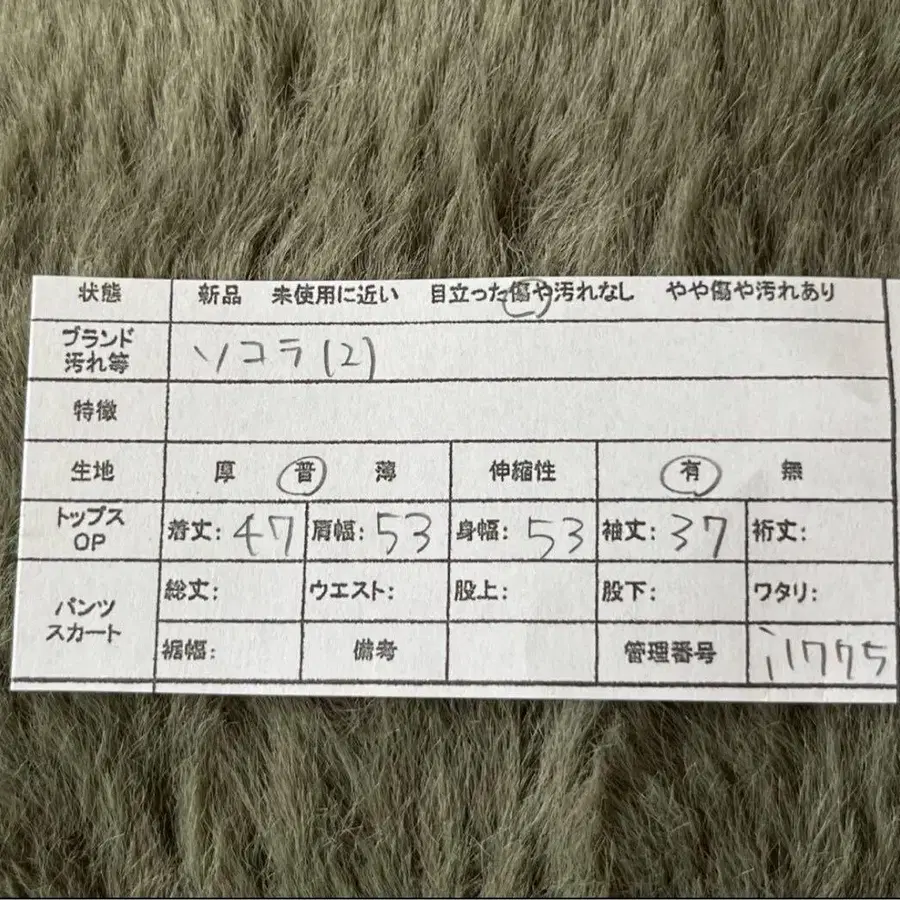 状態 新品 未使用に近い 目立った傷や汚れなし やや傷や汚れあり
ブランド
汚れ等
ソコラ(2)
特徴
生地 厚 普 薄 伸縮性 有 無
トップス
OP
着丈: 47 肩幅: 53 身幅: 53 袖丈: 37 裄丈:
パンツ
スカート
総丈: ウエスト: 股上: 股下: ワタリ:
裾幅: 備考 管理番号